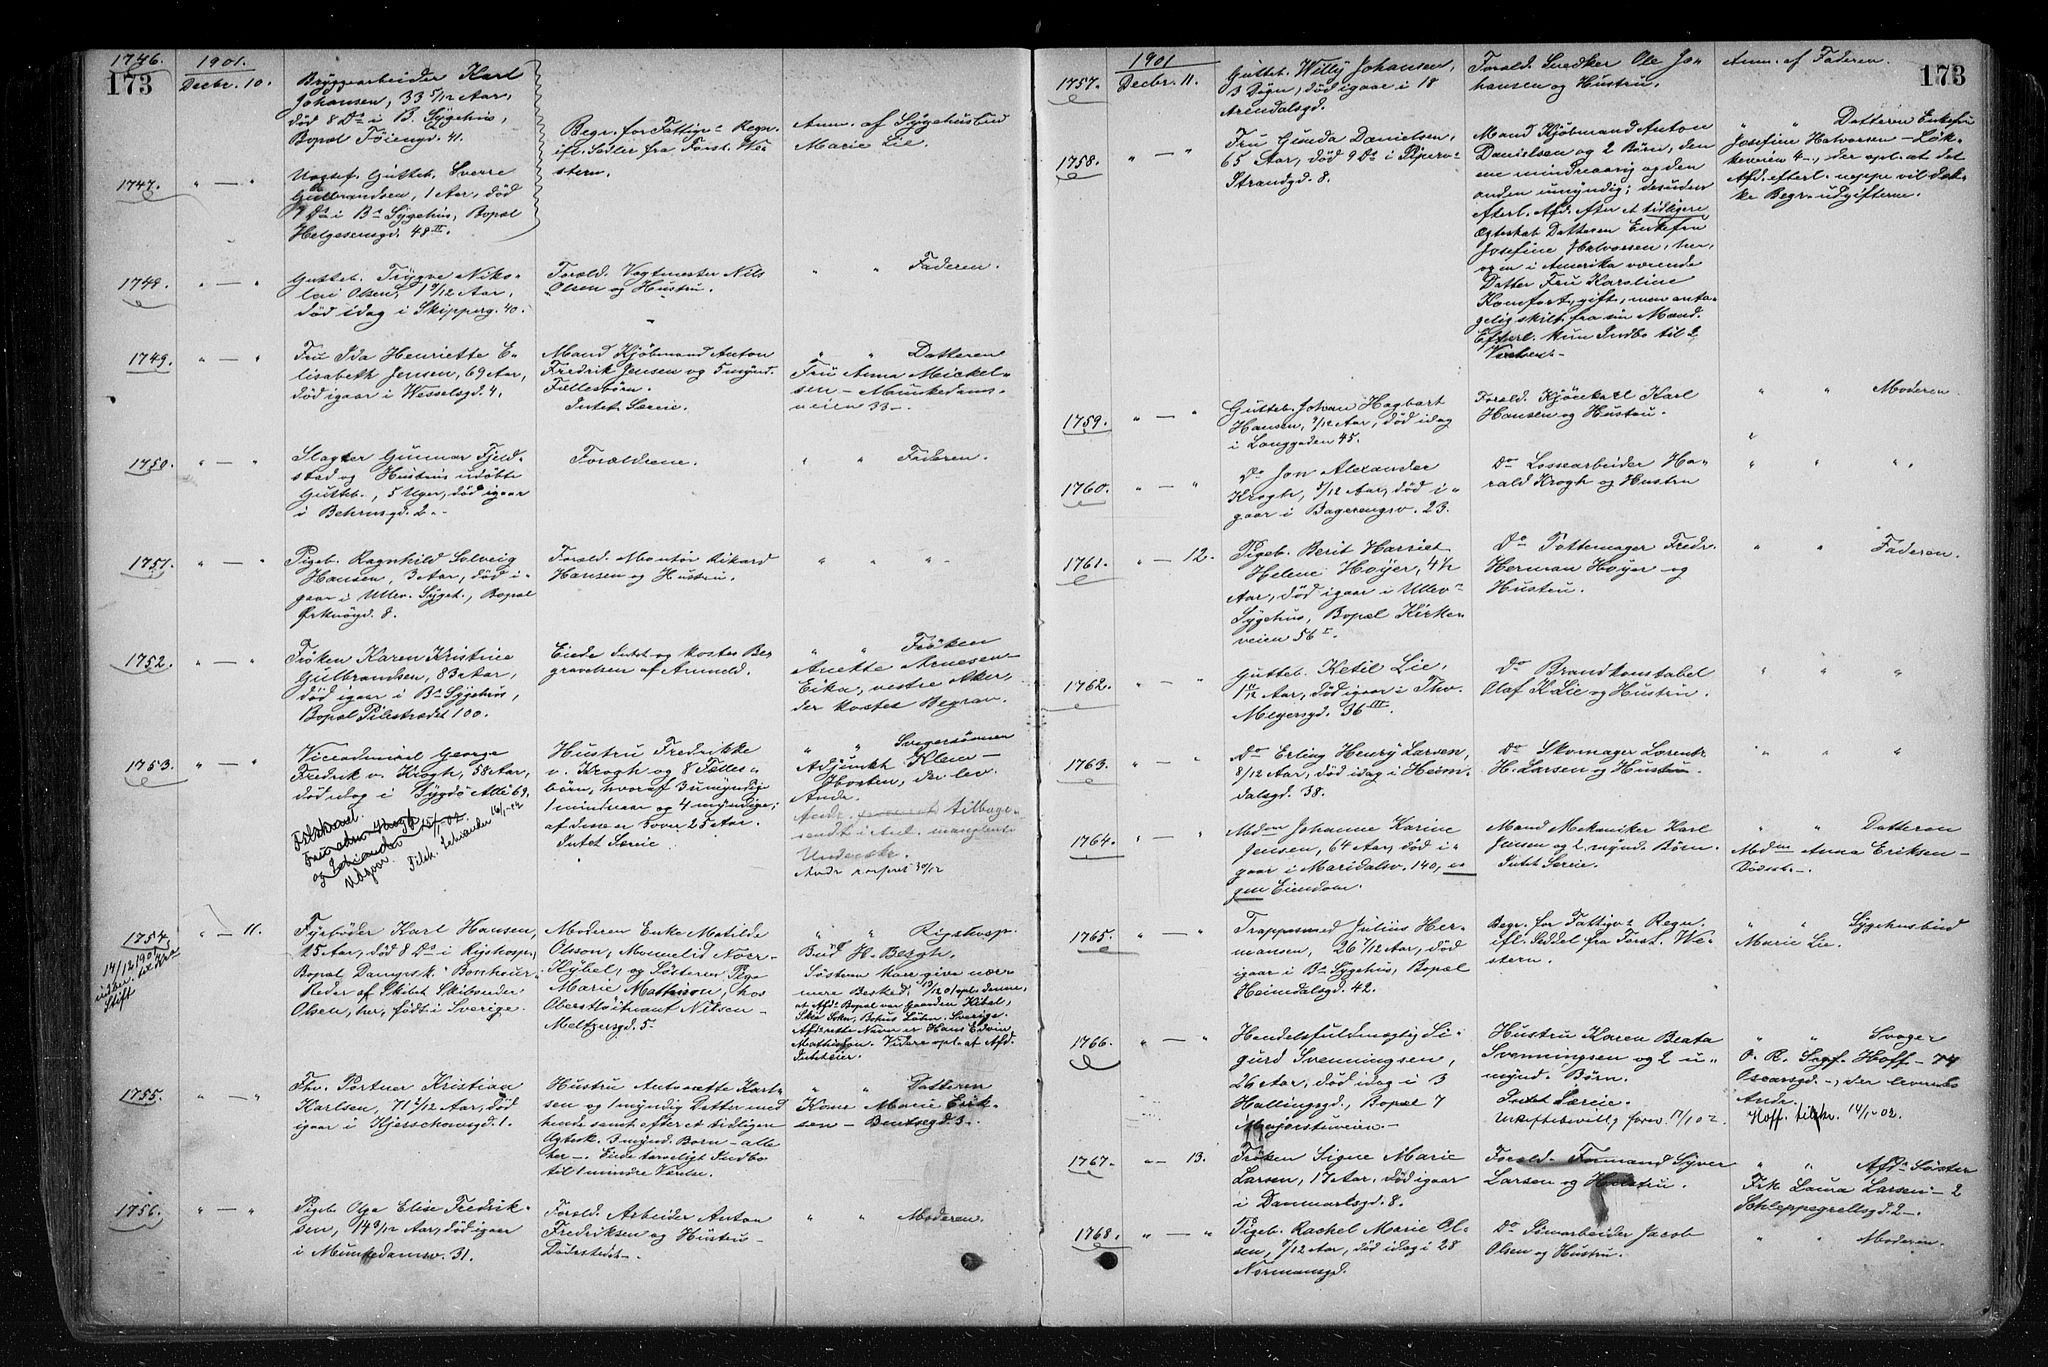 173
1746.
1901.
Decbr. 10.
Bryggearbeider Karl
Johansen, 33 5/12 Aar,
død 8 Ds i B. Sygehus,
Bopæl Töiengd. 41.
Begr. for Fattigv. Regn.
ifl. Sedler fra Forst. We-
stern.
Anm. af Sygehusbud
Marie Lie.
1747.
" — "
Uægtef. Gutteb. Sverre
Gulbrandsen, 1 Aar, død
9 Ds i Bs Sygehus, Bopæl
Helgesensgd. 48 II.
1748.
" — "
Gutteb. Trygve Niko-
lai Olsen, 1 9/12 Aar,
død idag i Skipperg. 40.
Foræld. Vagtmester Nils
Olsen og Hustru.
" " Faderen.
1749.
" — "
Fru Ida Henriette E-
lisabeth Jensen, 69 Aar,
død igaar i Wesselsgd. 4.
Mand Kjøbmand Anton
Fredrik Jensen og 5 mynd.
Fællesbørn.
Intet Særeie.
" " Datteren
Fru Anna Mickel-
sen — Munkedams-
veien 33 —.
1750.
" — "
Slagter Gunnar Fjeld-
stad og Hustrus udøbte
Gutteb., 5 Uger, død igaar
i Behrensgd. 2.
Forældrene.
" " Faderen.
1751.
" — "
Pigeb. Ragnhild Solveig
Hansen, 3 Aar, død i-
gaar i Ullev. Syget., Bopæl
Orknöygd. 8.
Foræld. Montör Rikard
Hansen og Hustru.
" " "
1752.
" — "
Fröken Karen Kristine
Gulbrandsen, 83 Aar,
død igaar i Bs Sygehus,
Bopæl Pilestrædet 100.
Eiede Intet og kostes Be-
gravelsen af Anmeld.
" " Fröken
Anette Arnesen —
Eika, vestre Aker,
der kostes Begrav.
1753.
" — "
Viceadmiral George
Fredrik v. Krogh, 58 Aar,
død idag i Bygdö Allé 69.
Hustru Fredrikke
v. Krogh og 8 Fælles-
börn, hvoraf 3 umyndige
1 mindreaar og 4 myndige;
af disse er 5 over 25 Aar.
Intet Særeie
" " Svigersönnen
Adjunkt Klem —
Horten, der lev.
Ande.
Ande. tilbage-
sendt i Anl. manglende
Underskr.
1754.
" — 11.
14/12 1901
Stift
Fyrböder Karl Hansen,
25 Aar, död 8 Ds i Rigshosp.,
Bopæl Dampsk. "Bonheur"
Reder af Skibet Skibsreder
Olsen, her, født i Sverige.
Moderen Enke Matilde
Olsson, Monnelid Noer-
Kybel, og Söstern Pige
Marie Mathison, hos
Oberstlöitnant Nilsen —
Meltzersgd. 5.
" " Rigshosp.
Bud H. Bergh.
Söstern kan give nær-
mere Besked, 13/12 01 opl. denne,
at Afds Bopæl var Gaarden Kibel,
Skee Sokn, Bohus Lähn, Sverige.
Afds rette Navn er Hans Edvin
Mathisson. Videre opl. at Afd.
Intet eier.
1755.
" — "
Fhv. Portner Kristian
Karlsen, 71 2/12 Aar, död
igaar i Kjerschowsgd. 1.
Hustru Antonette Karl-
sen og 1 myndig Datter med
hende samt efter et tidligere
Ægtesk. 3 mynd. Born — alle
her —. Eiede tarveligt Indbo
til 1 mindre Værelse.
" " Datteren
Kone Marie Erik-
sen — Bentsegd. 3.
1756.
" — "
Pigeb. Olga Elise Fredrik-
sen, 14 9/12 Aar, död igaar
i Munkedamsv. 31.
Foræld. Arbeider Anton
Fredriksen og Hustru —
Dödsstedet —.
" " Moderen.
173
1901
1757.
Decbr. 11.
Gutteb. Willy Johansen,
3 Dögn, død igaar i 18
Arendalsgd.
Foræld. Snedker Ole Jo-
hansen og Hustru.
Anm. af Faderen.
1758.
" — "
Fru Gunda Danielsen,
65 Aar, død 9 Ds i Pipervs
Strandgd. 8.
Mand Kjøbmand Anton
Danielsen og 2 Börn, den
ene mindreaarig og den
anden umyndig; desuden
efterl. Afd. efter et tidligere
Ægteskab Datteren Enkefru
Josefine Halvorsen, her,
og en i Amerika værende
Datter Fru Karoline
Komfort, gift, men anta-
gelig skilt fra sin Mand.
Efterl. kun Indbo til 2
Værelser.
" " Datteren Enkefru
Josefine Halvorsen — Løk-
keveien 4 —, der opl. at det
Afd. efterl. neppe vil dæk-
ke Begr.-udgifterne.
1759.
" — "
Gutteb. Johan Hagbart
Hansen, 9/12 Aar, død idag
i Langgaden 45.
Foræld. Kjörekarl Karl
Hansen og Hustru.
" " Moderen.
1760.
" — "
Do Jon Alexander
Krogh, 3/12 Aar, död i-
gaar i Bagerengsv. 23.
Do Lossearbeider Ha-
rald Krogh og Hustru
" " "
1761.
" — 12.
Pigeb. Berit Harriet
Helene Höyer, 4 1/2
Aar, död igaar i Ullevs
Sygehus, Bopæl Kirke-
veien 56 I.
Do Pottemager Fredr.
Herman Höyer og
Hustru.
" " Faderen.
1762.
" — "
Gutteb. Ketil Lie,
1 11/12 Aar, död igaar i Thv.
Meyersgd. 36 III.
Do Brandkonstabel
Olaf K. Lie og Hustru.
" " "
1763.
" — "
Do Erling Henry Larsen,
8/12 Aar, död idag i Heim-
dalsgd. 38.
Do Skomager Lorentz
H. Larsen og Hustru.
" " "
1764.
" — "
Mdm Johanne Karine
Jensen, 64 Aar, död i-
gaar i Maridalsv. 140, e-
gen Eiendom.
Mand Mekaniker Karl
Jensen og 2 mynd. Börn.
Intet Særeie.
" " Datteren
Mdm Anna Eriksen —
Dødsst. —.
1765.
" — "
Trappesmed Julius Her-
mansen, 26 7/12 Aar, död
igaar i Bs Sygehus, Bopæl
Heimdalsgd. 42.
Begr. for Fattigvs Regn.
ifl. Seddel fra Forst. We-
stern.
" " Sygehusbud
Marie Lie.
1766.
" — "
Handelsfuldmægtig Si-
gurd Svenningsen,
26 Aar, död idag i 3
Hallingsgd., Bopæl 7
Majorstuveien —
Hustru Karen Beata
Svenningsen og 2 u-
mynd. Börn.
Intet Særeie.
Uskiftebevillg forev. 17/1 02
" " Svoger
O. R. Sigf. Hoff — 74
Oscarsgd. —, der leverede
Ande.
Hoff. tilskr. 14/1-02.
1767.
" — 13.
Fröken Signe Marie
Larsen, 17 Aar, död igaar
i Danmarksgd. 8.
Foræld. Formand Syver
Larsen og Hustru.
" " Afds Söster
Frk Laura Larsen — 2
Schleppegrellsgd. 2 —.
1768.
" — "
Pigeb. Rachel Marie Ol-
sen, 9/12 Aar, död idag i 28
Normansgd.
Do Tömarbeider Jacob
Olsen og Hustru.
" " Moderen.